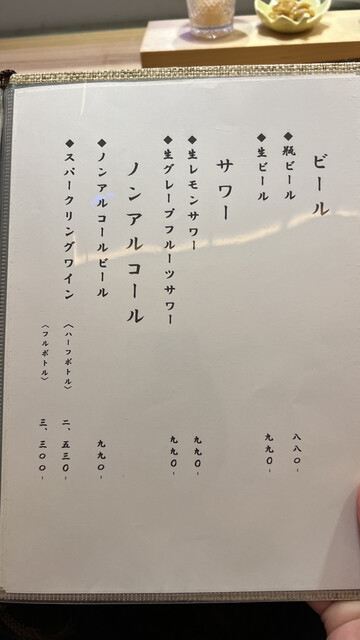 ビール
◆瓶ビール 八八〇-
◆生ビール 九九〇-
サワー
◆生レモンサワー 九九〇-
◆生グレープフルーツサワー 九九〇-
ノンアルコール
◆ノンアルコールビール 九九〇-
◆スパークリングワイン 〈ハーフボトル〉 二、五三〇-
〈フルボトル〉 三、三〇〇-